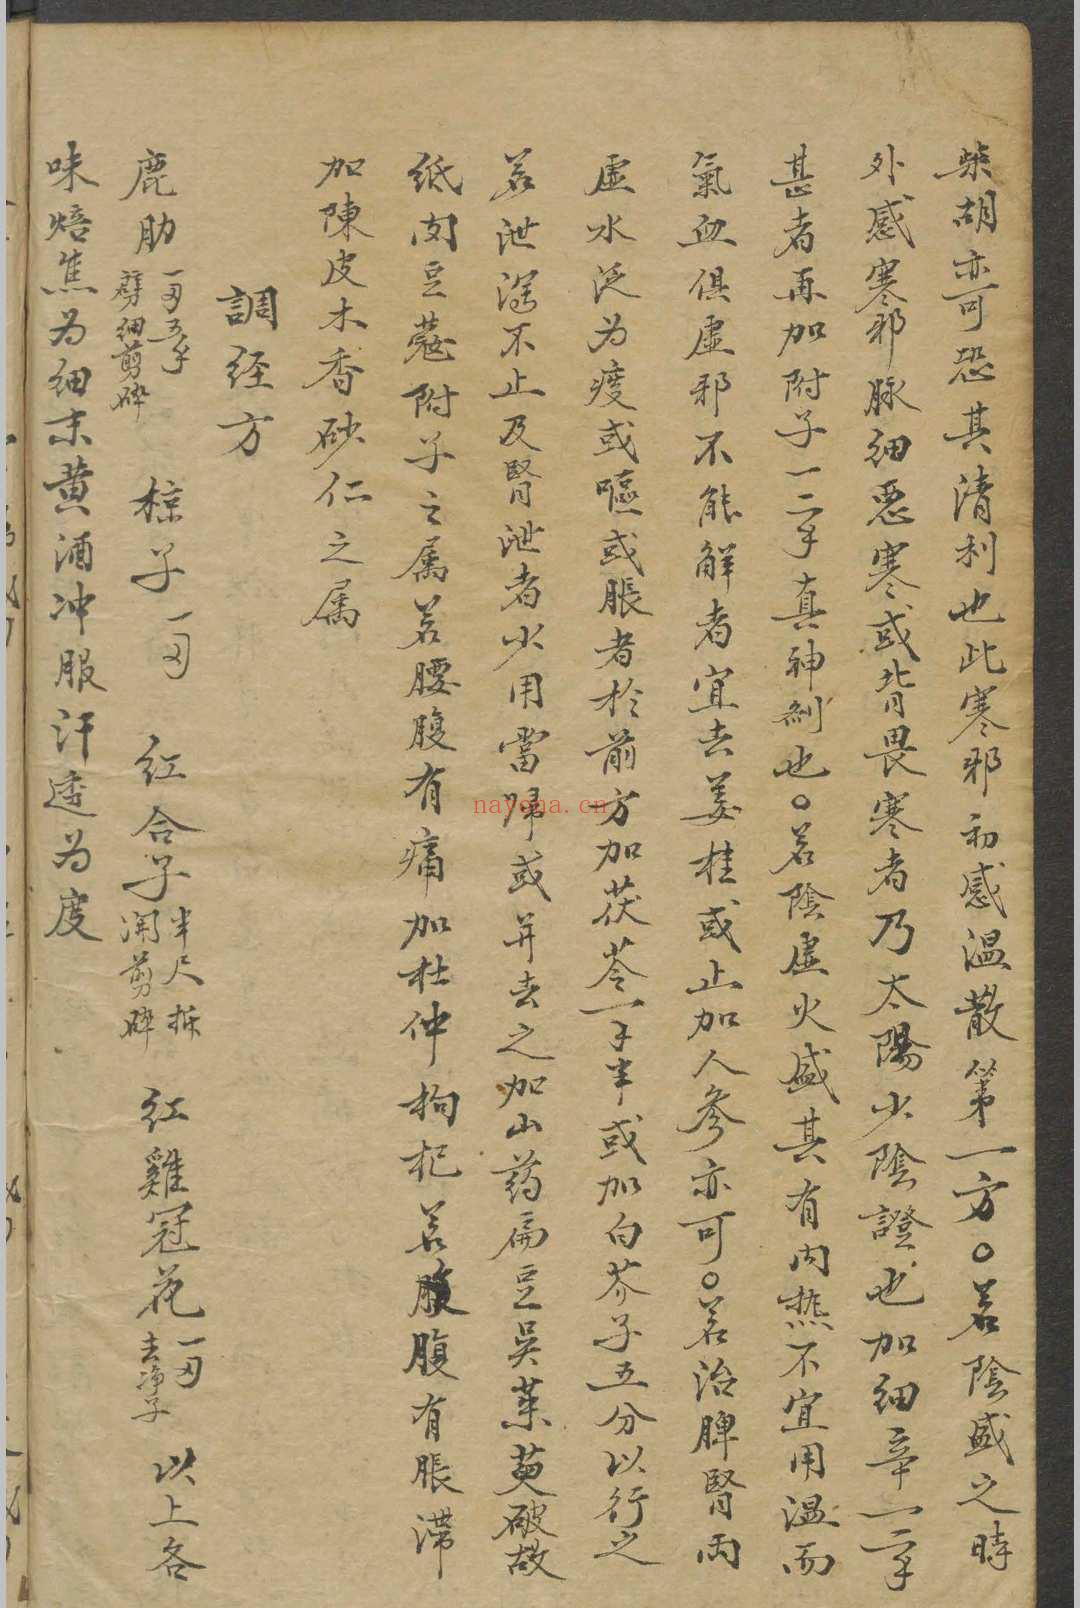 柴胡亦可恐其清利也此寒邪初感温散第一方○若陰盛之時
外感寒邪脉细惡寒或背畏寒者乃太陽少陰證也加细辛一二錢
甚者再加附子一二錢真神剂也○若陰虛火盛其有内热不宜用温而
氣血俱虛邪不能解者宜去姜桂或止加人參亦可○若治脾腎両
虛水泛为痰或嘔或脹者於前方加茯苓一錢半或加白芥子五分以行之
若泄瀉不止及腎泄者少用當归或并去之加山药扁豆吴茱萸破故
纸肉豆蔻附子之属若腰腹有痛加杜仲枸杞若腹有脹滞
加陳皮木香砂仁之属
調经方
鹿肋 一両五錢 劈细剪碎 棕子一両 红合子 半尺拆開剪碎 红雞冠花 一両去净子 以上各
味焙焦为细末黄酒冲服汗透为度
nayona.cn